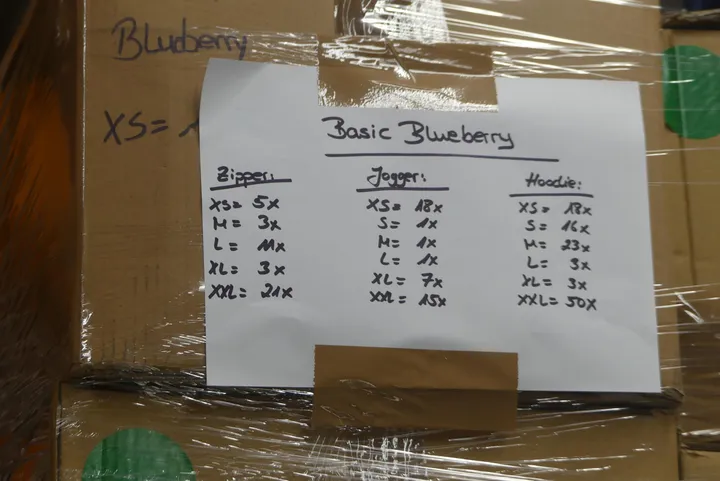 Blueberry
XS=
Basic Blueberry
Zipper:
XS= 5x
M= 3x
L= 11x
XL= 3x
XXL= 21x
Jogger:
XS= 18x
S= 1x
M= 1x
L= 1x
XL= 7x
XXL= 15x
Hoodie:
XS= 18x
S= 16x
M= 23x
L= 3x
XL= 3x
XXL= 50x